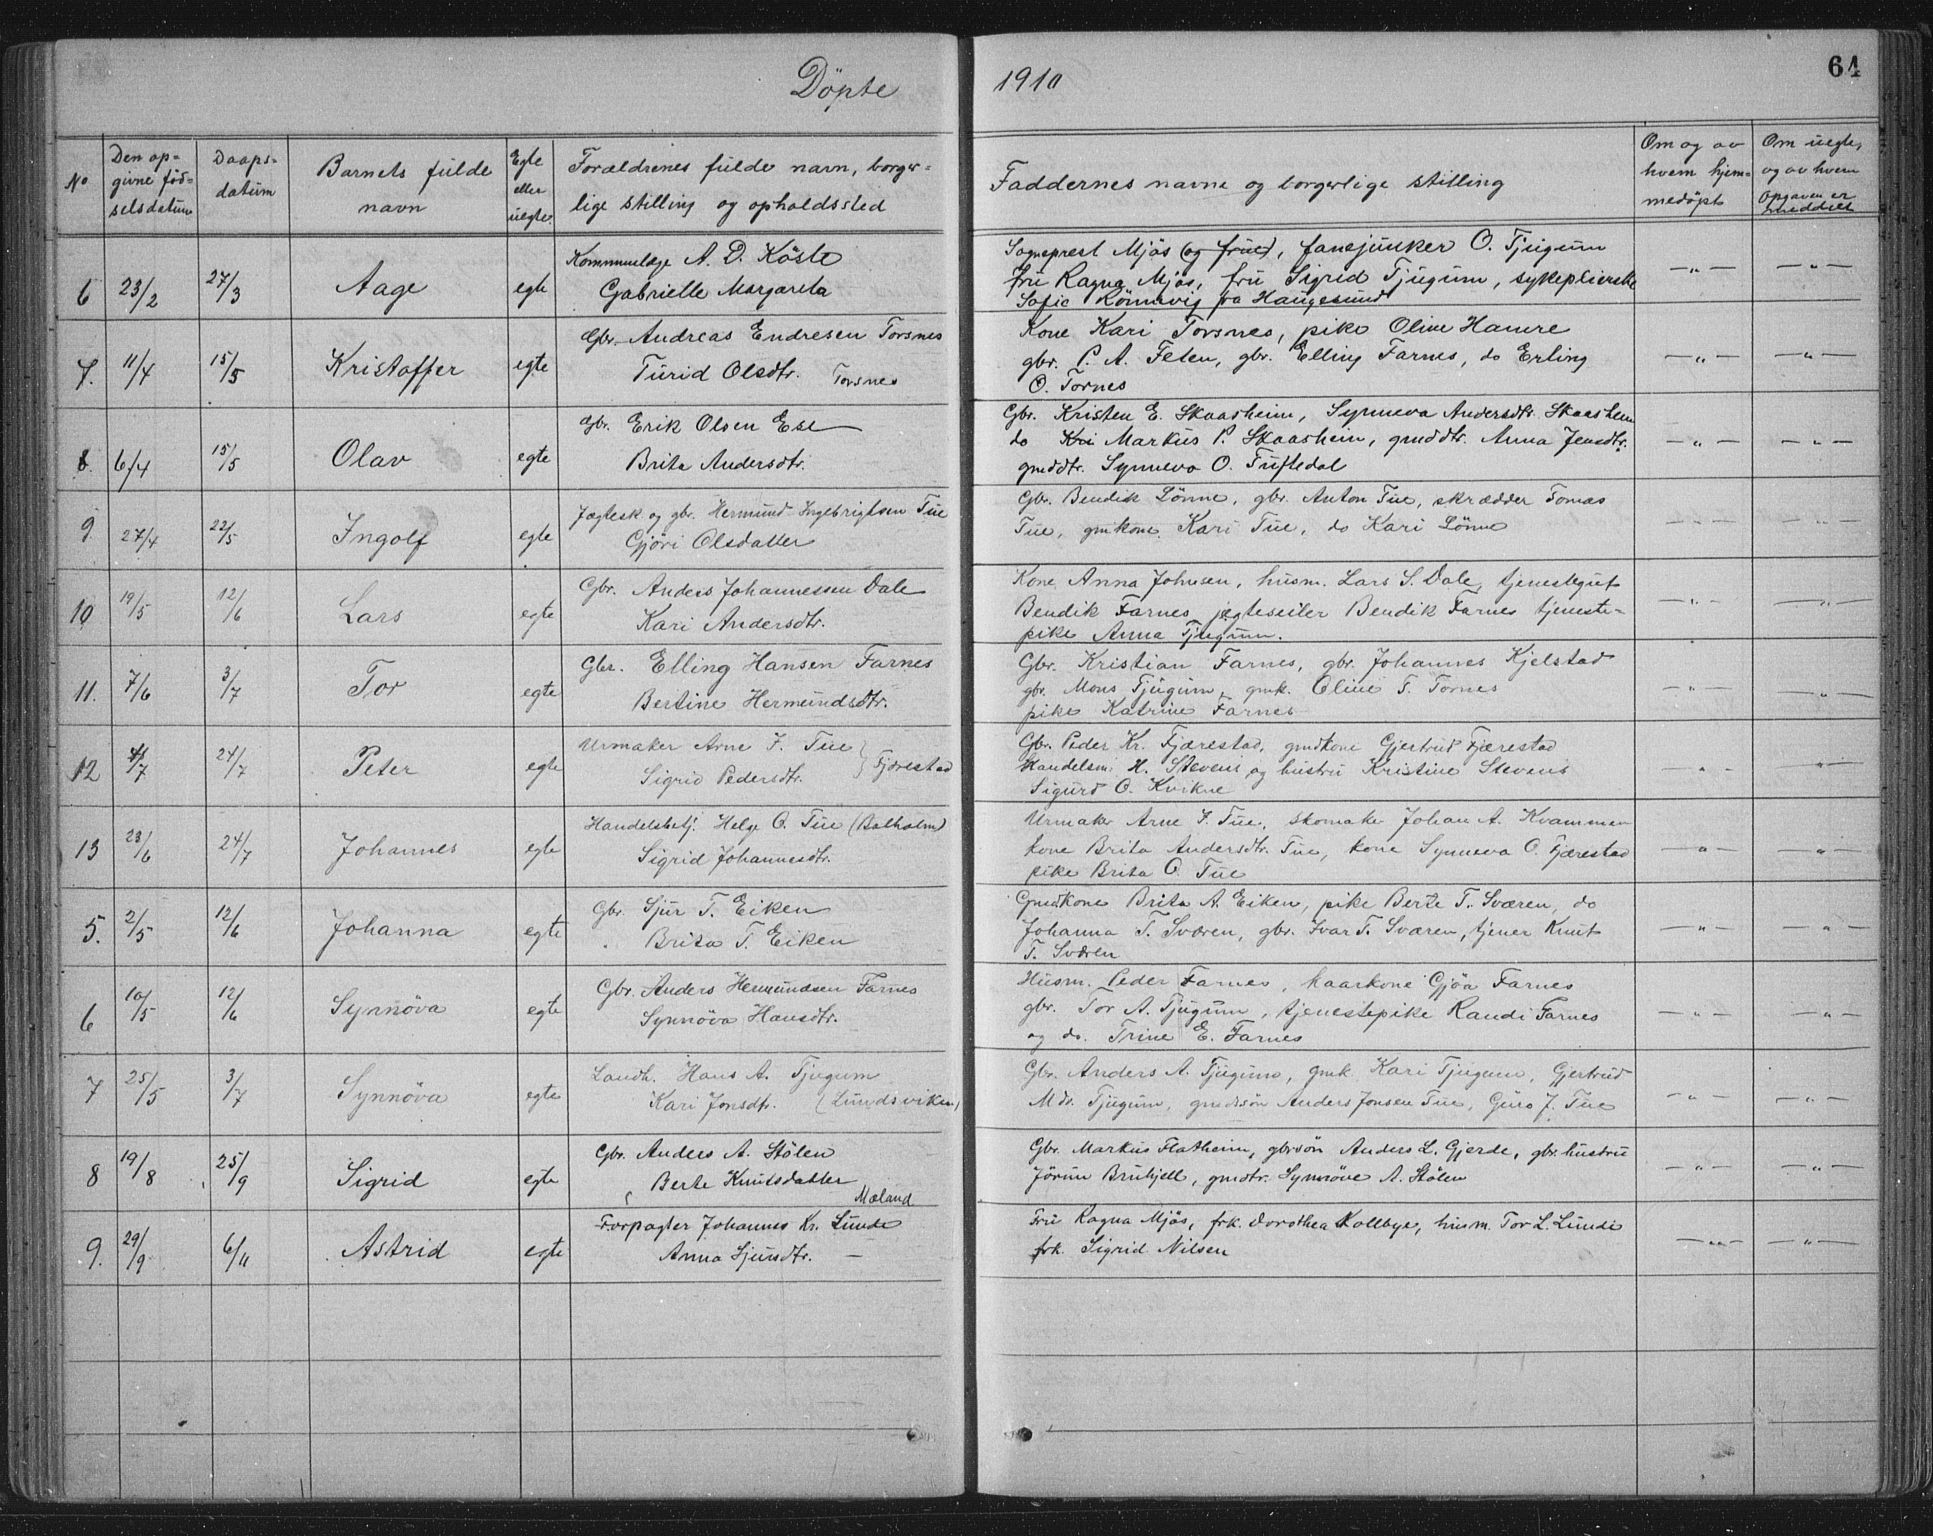 Döpte 1910
64
No
Den op-
givne föd-
selsdatum
Daaps-
datum
Barnets fulde
navn
Egte
eller
uegte
Forældrenes fulde navn, borger-
lige stilling og opholdssted
Faddernes navne og borgerlige stilling
Om og av
hvem hjem-
medöpt
Om uegte,
og av hvem
opgaven er
meddelt
6 23/2 27/3 Aage egte
Kommunelæge A. D. Köste
Gabrielle Margareta
Sogneprest Mjös (og frue), fanejunker O. Tjugum
fru Ragna Mjös, fru Sigrid Tjugum, sykepleierske
Sofie Rönnevig fra Haugesund
—„— —„—
7. 11/4 15/5 Kristoffer egte
Gbr. Andreas Endresen Torsnes
Turid Olsdtr. Torsnes
Kone Kari Torsnes, pike Oline Hamre
gbr. P. A. Feten, gbr. Elling Farnes, do Erling
O. Tornes
—„— —„—
8. 6/4 15/5 Olav egte
Gbr. Erik Olsen Ese
Brita Andersdtr.
Gbr. Kristen E. Skaasheim, Synneva Andersdtr. Skaasheim
do Markus P. Skaasheim, gmddtr. Anna Jensdtr.
gmddtr. Synneva O. Tuftedal
—„— —„—
9. 27/4 22/5 Ingolf egte
Jægtesk. og gbr. Hermund Ingebrigtsen Tue
Gjöri Olsdatter
Gbr. Bendik Lönne, gbr. Anton Tue, skrædder Tomas
Tue, gmkone Kari Tue, do Kari Lönne
—„— —„—
10 19/5 12/6 Lars egte
Gbr. Anders Johannessen Dale
Kari Andersdtr.
Kone Anna Johnsen, husm. Lars S. Dale, tjenestegut
Bendik Farnes, jegteseiler Bendik Farnes tjeneste-
pike Anna Tjugum.
—„— —„—
11. 7/6 3/7 Tor egte
Gbr. Elling Hansen Farnes
Bertine Hermundsdtr.
Gbr. Kristian Farnes, gbr. Johannes Kjelstad
gbr. Mons Tjugum, gmk. Oline T. Tornes
pike Katrine Farnes
—„— —„—
12 /7 24/7 Peter egte
Urmaker Arne J. Tue
Sigrid Pedersdtr. } Fjærestad
Gbr. Peder Kr. Fjærestad, gmdkone Gjertrud Fjærestad
Handelsm. H. Stevens og hustru Kristine Stevens
Sigurd O. Kvikne
—„— —„—
13 23/6 24/7 Johannes egte
Handelsbetj. Helge O. Tue (Balholm)
Sigrid Johannesdtr.
Urmaker Arne J. Tue, skomaker Johan A. Kvammen
kone Brita Andersdtr. Tue, kone Synneva O. Fjærestad
pike Brita O. Tue
—„— —„—
5. 2/5 12/6 Johanna egte
Gbr. Sjur T. Eiken
Brita T. Eiken
Gmdkone Brita A. Eiken, pike Berte T. Sværen, do
Johanna T. Sværen, gbr. Ivar T. Sværen, tjener Knut
T. Sværen
—„— —„—
6 10/5 12/6 Synnöva egte
Gbr. Anders Hermundsen Farnes
Synnöva Hansdtr.
Husm. Peder Farnes, kaarkone Gjöa Farnes
gbr. Tor A. Tjugum, tjenestepike Randi Farnes
og do. Trine E. Farnes
—„— —„—
7 25/5 3/7 Synnöva egte
Landh. Hans A. Tjugum
Kari Jonsdtr. (Lundsviken)
Gbr. Anders A. Tjugum, gmk. Kari Tjugum, Gjertrud
M dr. Tjugum, gmdssön Anders Jonsen Tue, Guro J. Tue
—„— —„—
8 19/8 25/9 Sigrid egte
Gbr. Anders A. Stölen
Berte Knutsdatter
Gbr. Markus Flatheim, gbrsön Anders L. Gjerde, gbr. hustru
Jörun Bruhjell, gmdtr. Synnöve A. Stölen
—„— —„—
9. 29/9 6/11 Astrid egte
Mæland
Forpagter Johannes Kr. Lunde
Anna Sjursdtr. —
Fru Ragna Mjös, frk. Dorothea Kollbye, husm. Tor L. Lunde
frk. Sigrid Nilsen
—„— —„—